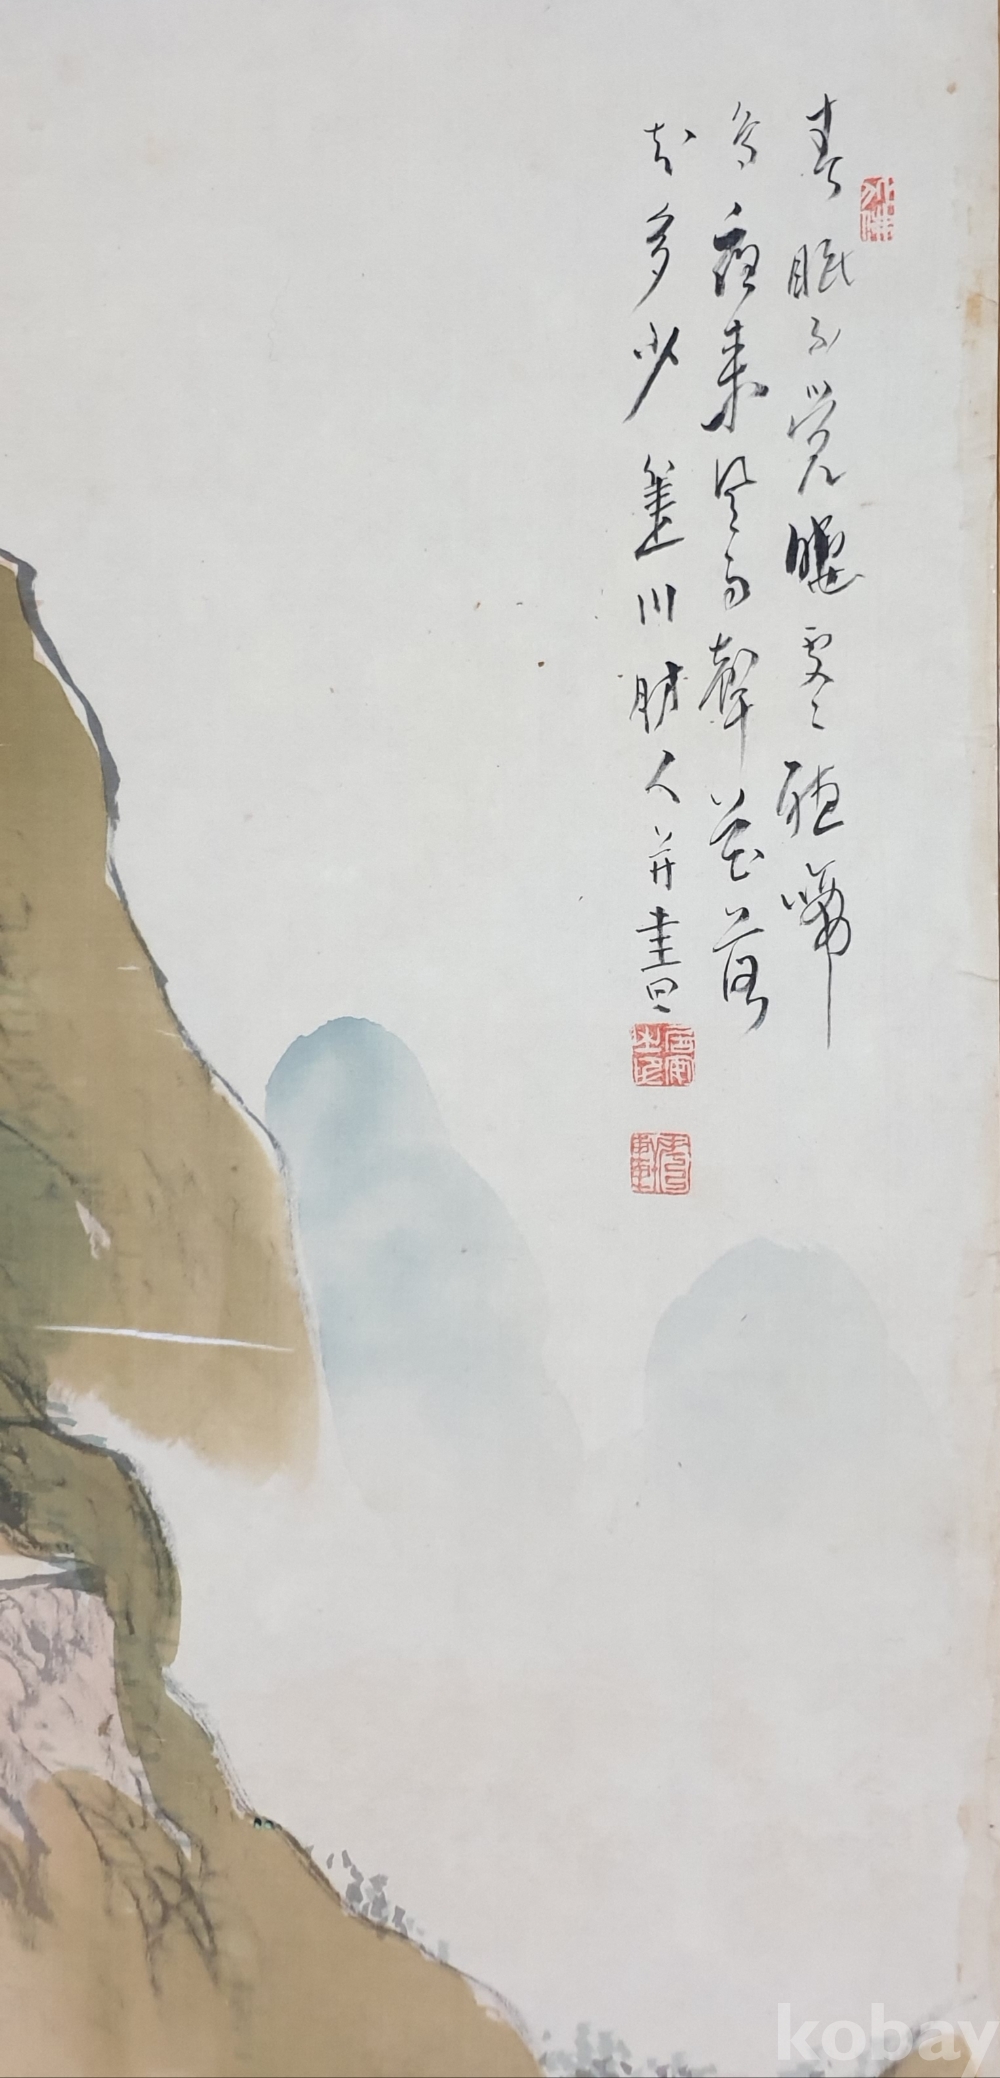 春眠不覺曉處々聽啼
鳥夜來風雨聲花落
知多少 川 人并書
kobay